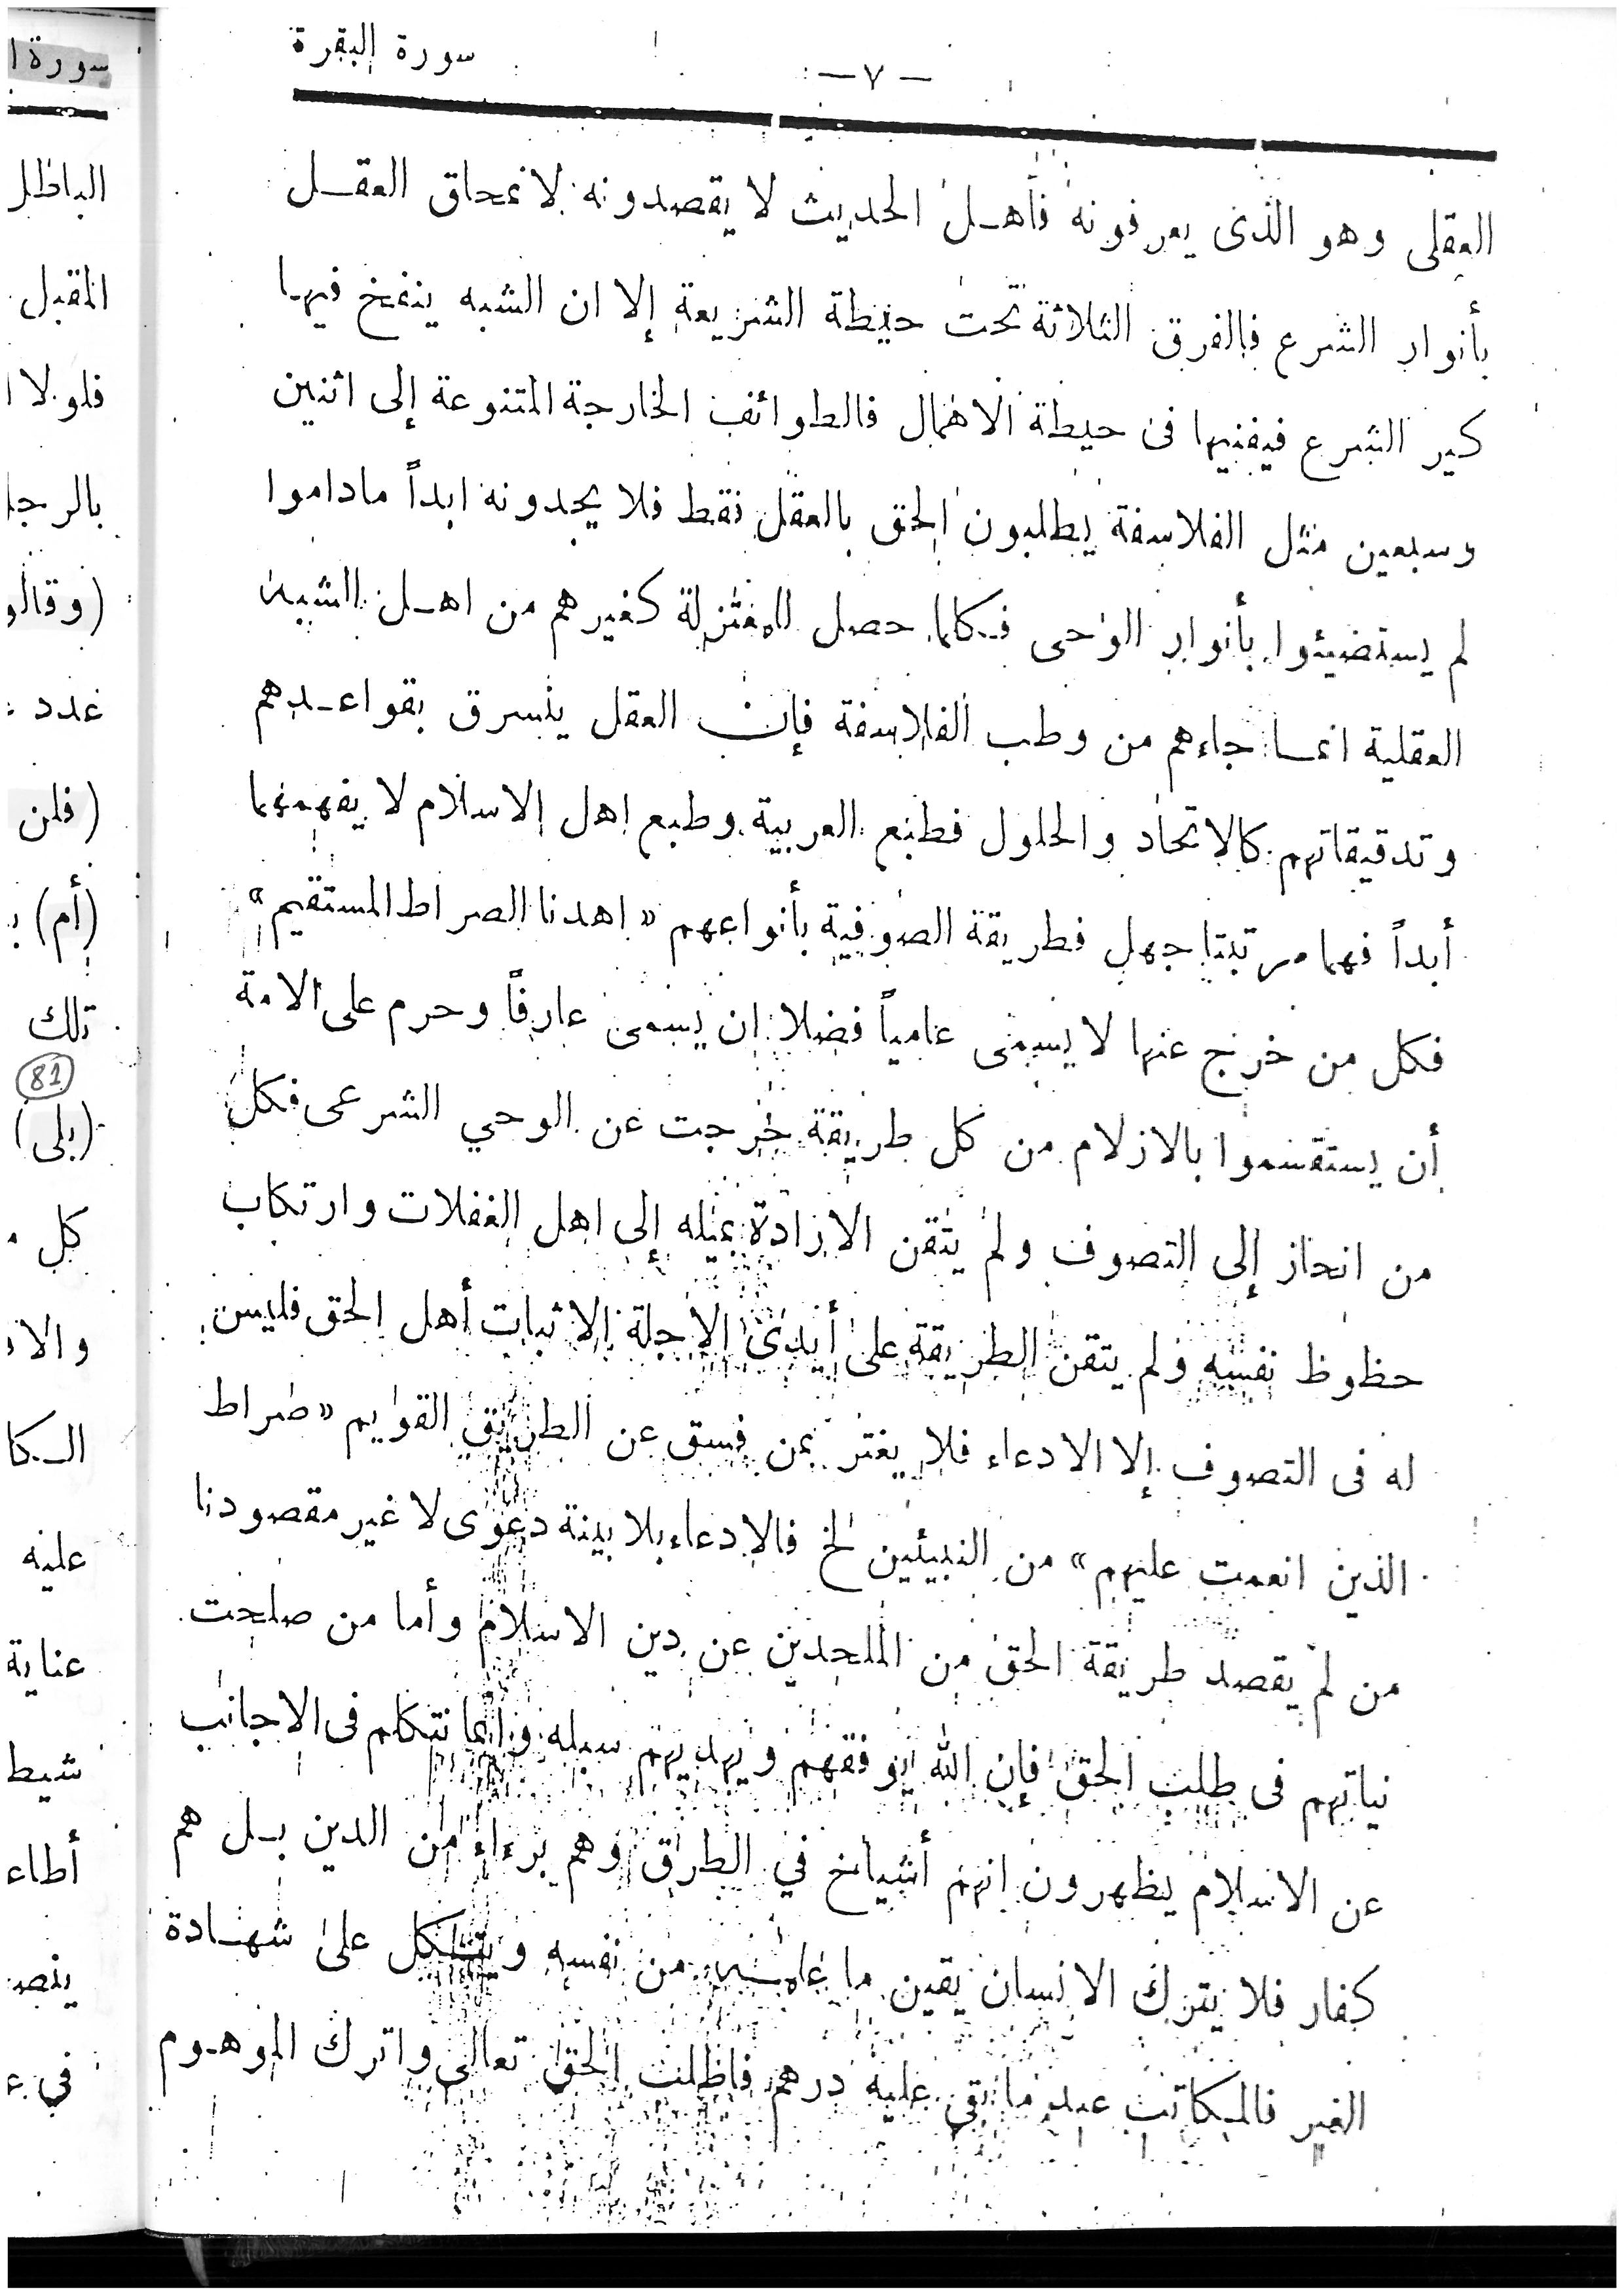 سورة البقرة
— ٧ —
العقلى وهو الذى يعرفونه فأهل الحديث لا يقصدونه لانمحاق العقل
بأنوار الشرع فالفرق الثلاثة تحت حيطة الشريعة إلا ان الشبه ينفخ فيها
كير الشرع فيفنيها فى حيطة الاهمال فالطوائف الخارجة المتنوعة إلى اثنين
وسبعين مثل الفلاسفة يطلبون الحق بالعقل فقط فلا يجدونه ابداً ماداموا
لم يستضيئوا بأنوار الوحى فكلما حصل للمعتزلة كغيرهم من اهل الشبه
العقلية انما جاءهم من وطب الفلاسفة فإن العقل ينسرق بقواعدهم
وتدقيقاتهم كالاتحاد والحلول فطبع العربية وطبع اهل الاسلام لا يفهمهما
أبداً فهما مرتبتا جهل فطريقة الصوفية بأنواعهم « اهدنا الصراط المستقيم »
فكل من خرج عنها لا يسمى عامياً فضلا ان يسمى عارفاً وحرم على الامة
أن يستقسموا بالازلام من كل طريقة خرجت عن الوحي الشرعى فكل
من انحاز إلى التصوف ولم يتقن الارادة بميله إلى اهل الغفلات وارتكاب
حظوظ نفسه ولم يتقن الطريقة على أيدى الاجلة الاثبات أهل الحق فليس
له فى التصوف إلا الادعاء فلا يغتر بمن فسق عن الطريق القويم « صراط
الذين انعمت عليهم » من النبيئين الخ فالادعاء بلا بينة دعوى لا غير مقصودنا
من لم يقصد طريقة الحق من الملحدين عن دين الاسلام وأما من صلحت
نياتهم فى طلب الحق فإن الله يوفقهم ويهديهم سبله وإنما نتكلم فى الاجانب
عن الاسلام يظهرون انهم أشياخ في الطرق وهم برءاء من الدين بل هم
كفار فلا يترك الانسان يقين ما علمه من نفسه ويتكل على شهادة
الغير فالمكاتب عبد ما بقي عليه درهم فاطلب الحق تعالى واترك الموهوم
سورة ا
الباطل
المقبل
فلولا ا
بالرجا
(وقالو
عدد
(فلن
(أم)
تلك
81
(بلى)
كل
والا
الكا
عليه
عناية
شيط
أطاء
ينصـ
في ع